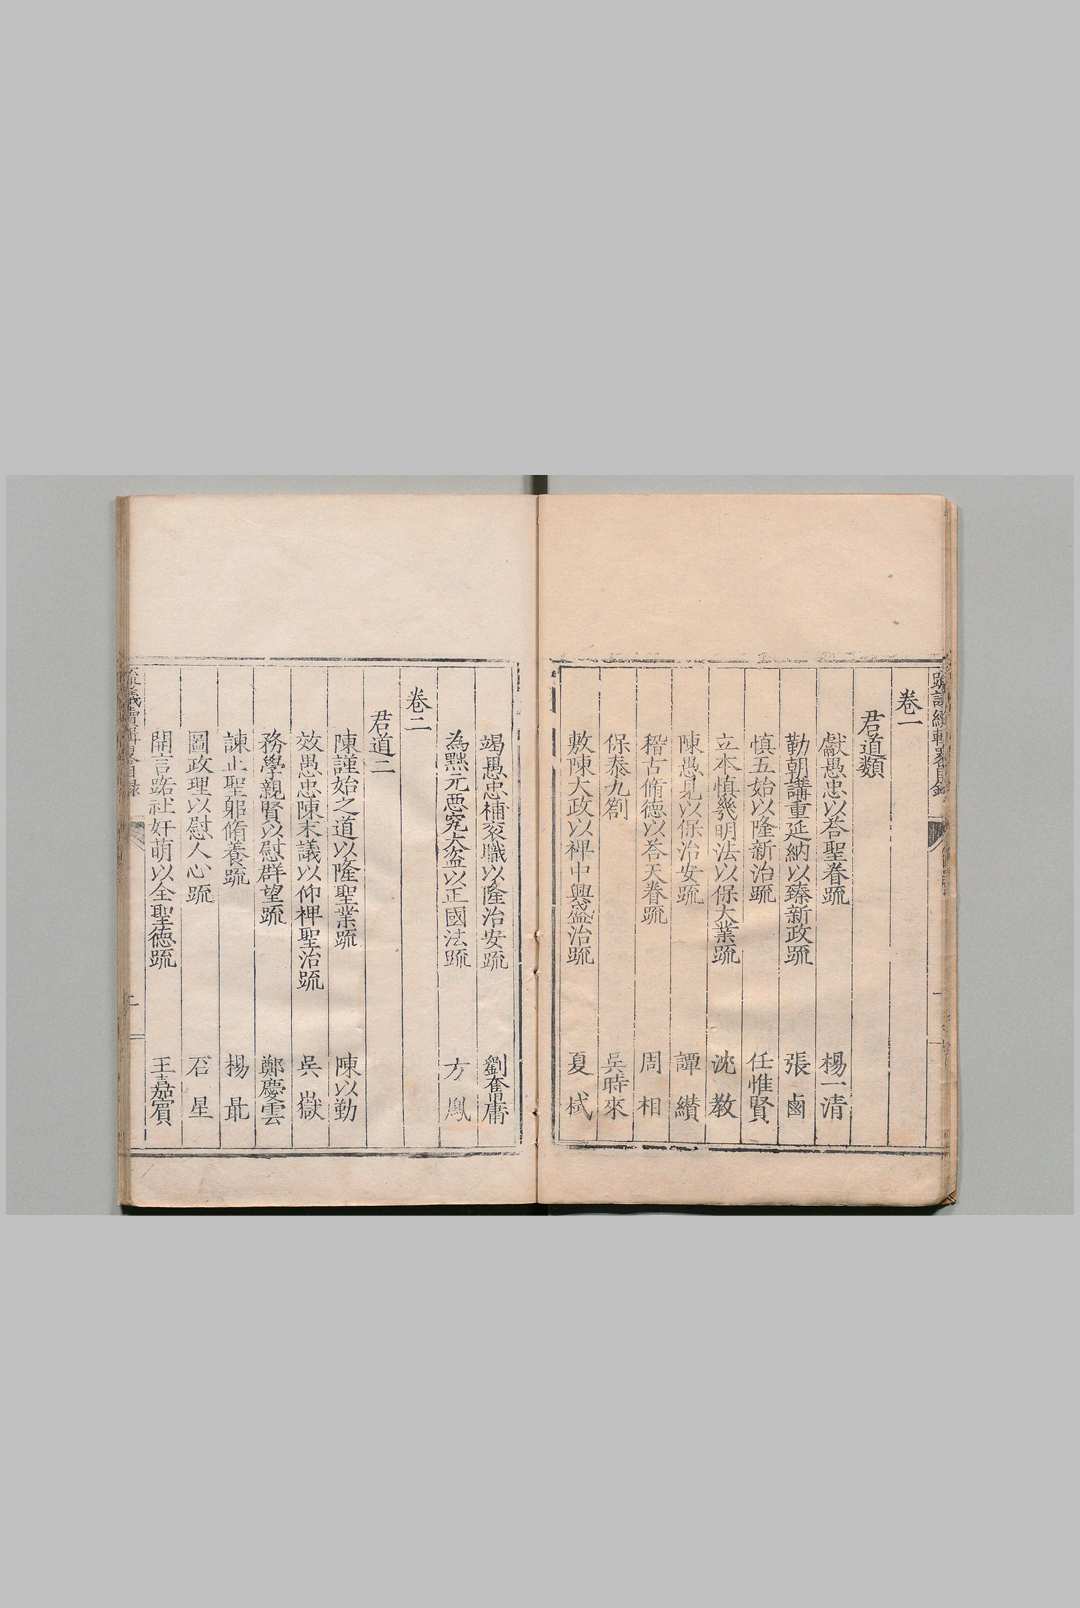 卷一
君道類
獻愚忠以荅聖眷疏 楊一清
勤朝講重延納以臻新政疏 張鹵
慎五始以隆新治疏 任惟賢
立本慎幾明法以保大業疏 沈教
陳愚見以保治安疏 譚纘
稽古脩德以荅天眷疏 周相
保泰九劄 吳時來
敷陳大政以裨中興盛治疏 夏栻
竭愚忠補衮職以隆治安疏 劉奮庸
為黙元惡究大盗以正國法疏 方鳳
卷二
君道二
陳謹始之道以隆聖業疏 陳以勤
效愚忠陳末議以仰裨聖治疏 吳嶽
務學親賢以慰群望疏 鄭慶雲
諫止聖躬脩養疏 楊最
圖政理以慰人心疏 石星
開言路祉奸萌以全聖德疏 王嘉賓